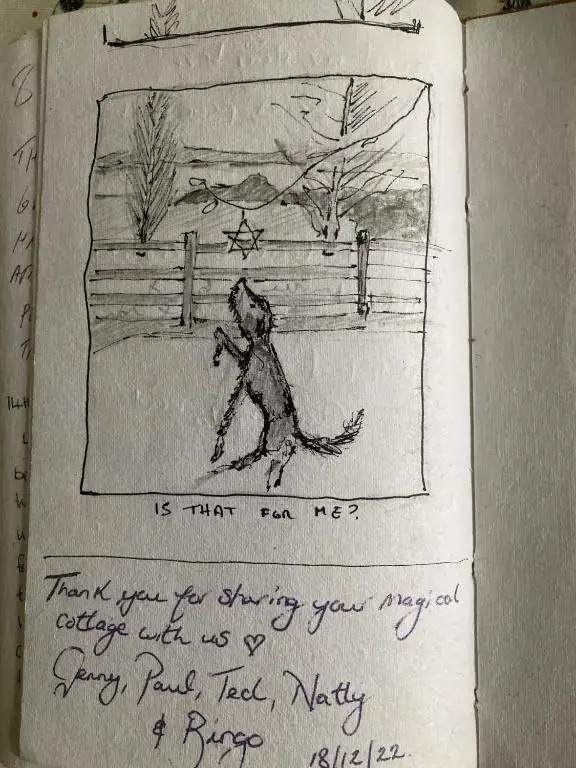 IS THAT FOR ME?
Thank you for sharing your magical
cottage with us ♡
Jenny, Paul, Ted, Natty
& Ringo
18/12/22.